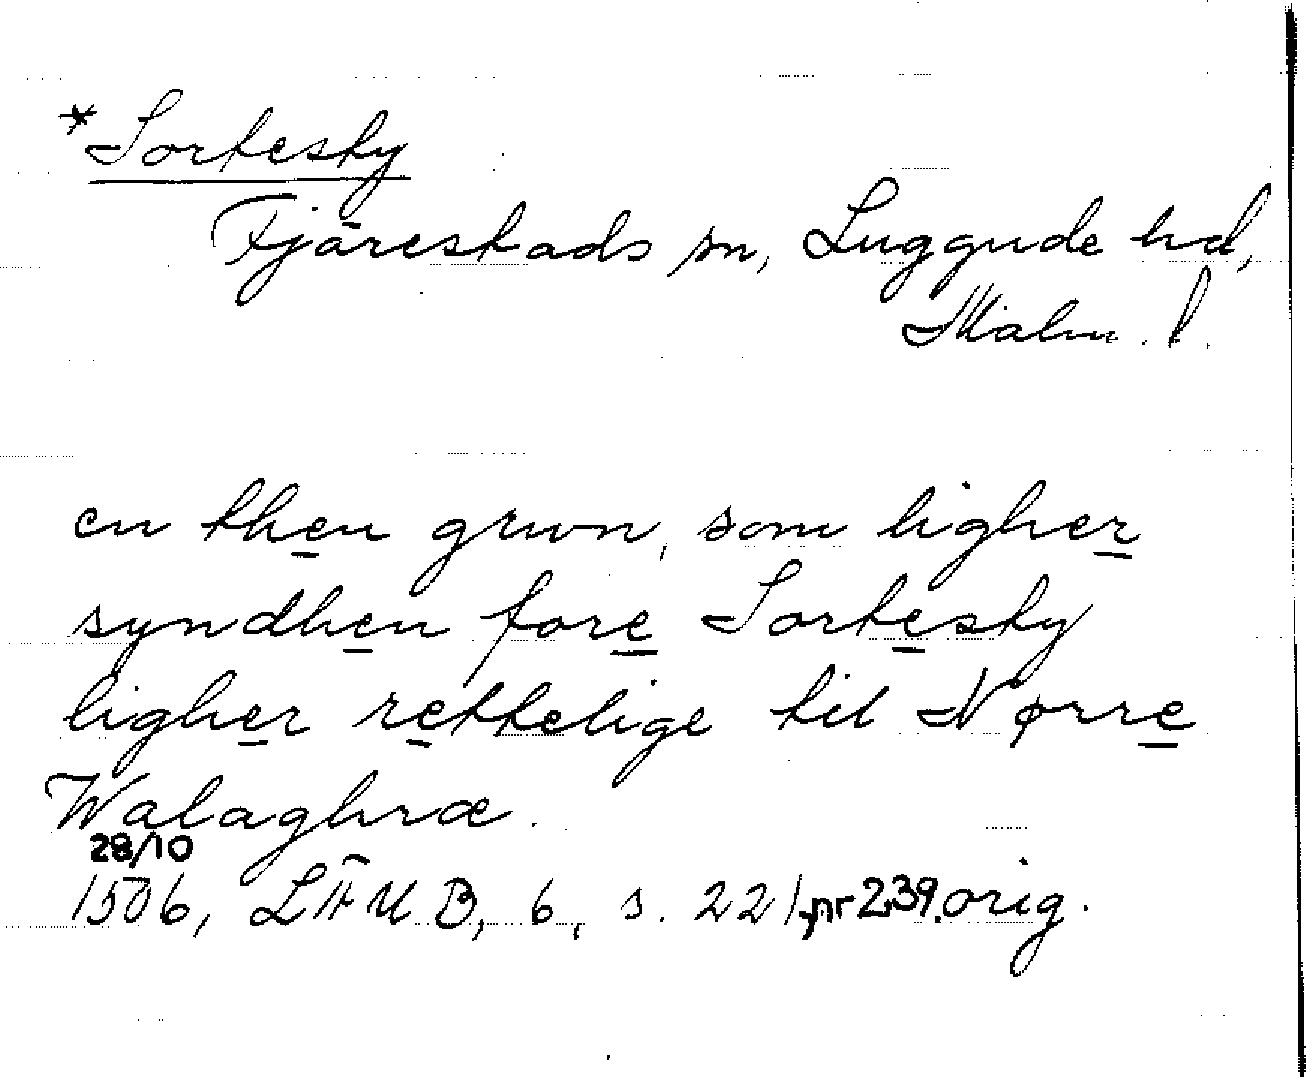 *Sortesky
Fjärestads sn, Luggude hd,
Malm. l.
en then grwn, som ligher
syndhen fore Sortesky
ligher rettelige til Nørre
Walaghræ.
28/10
1506, LÄUB, 6, s. 221, nr 239. orig.